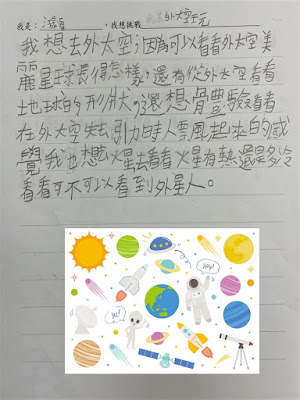 我是：，我想挑戰 外太空
我想去外太空；因為可以看看外太空美
麗星球長得怎樣，還有從外太空看看
地球的形狀，還想體驗看看
在外太空失去引力時人飄起來的感
覺我也想去火星去看看火星有熱還是多冷
看看可不可以看到外星人。
Hey!
Hi!